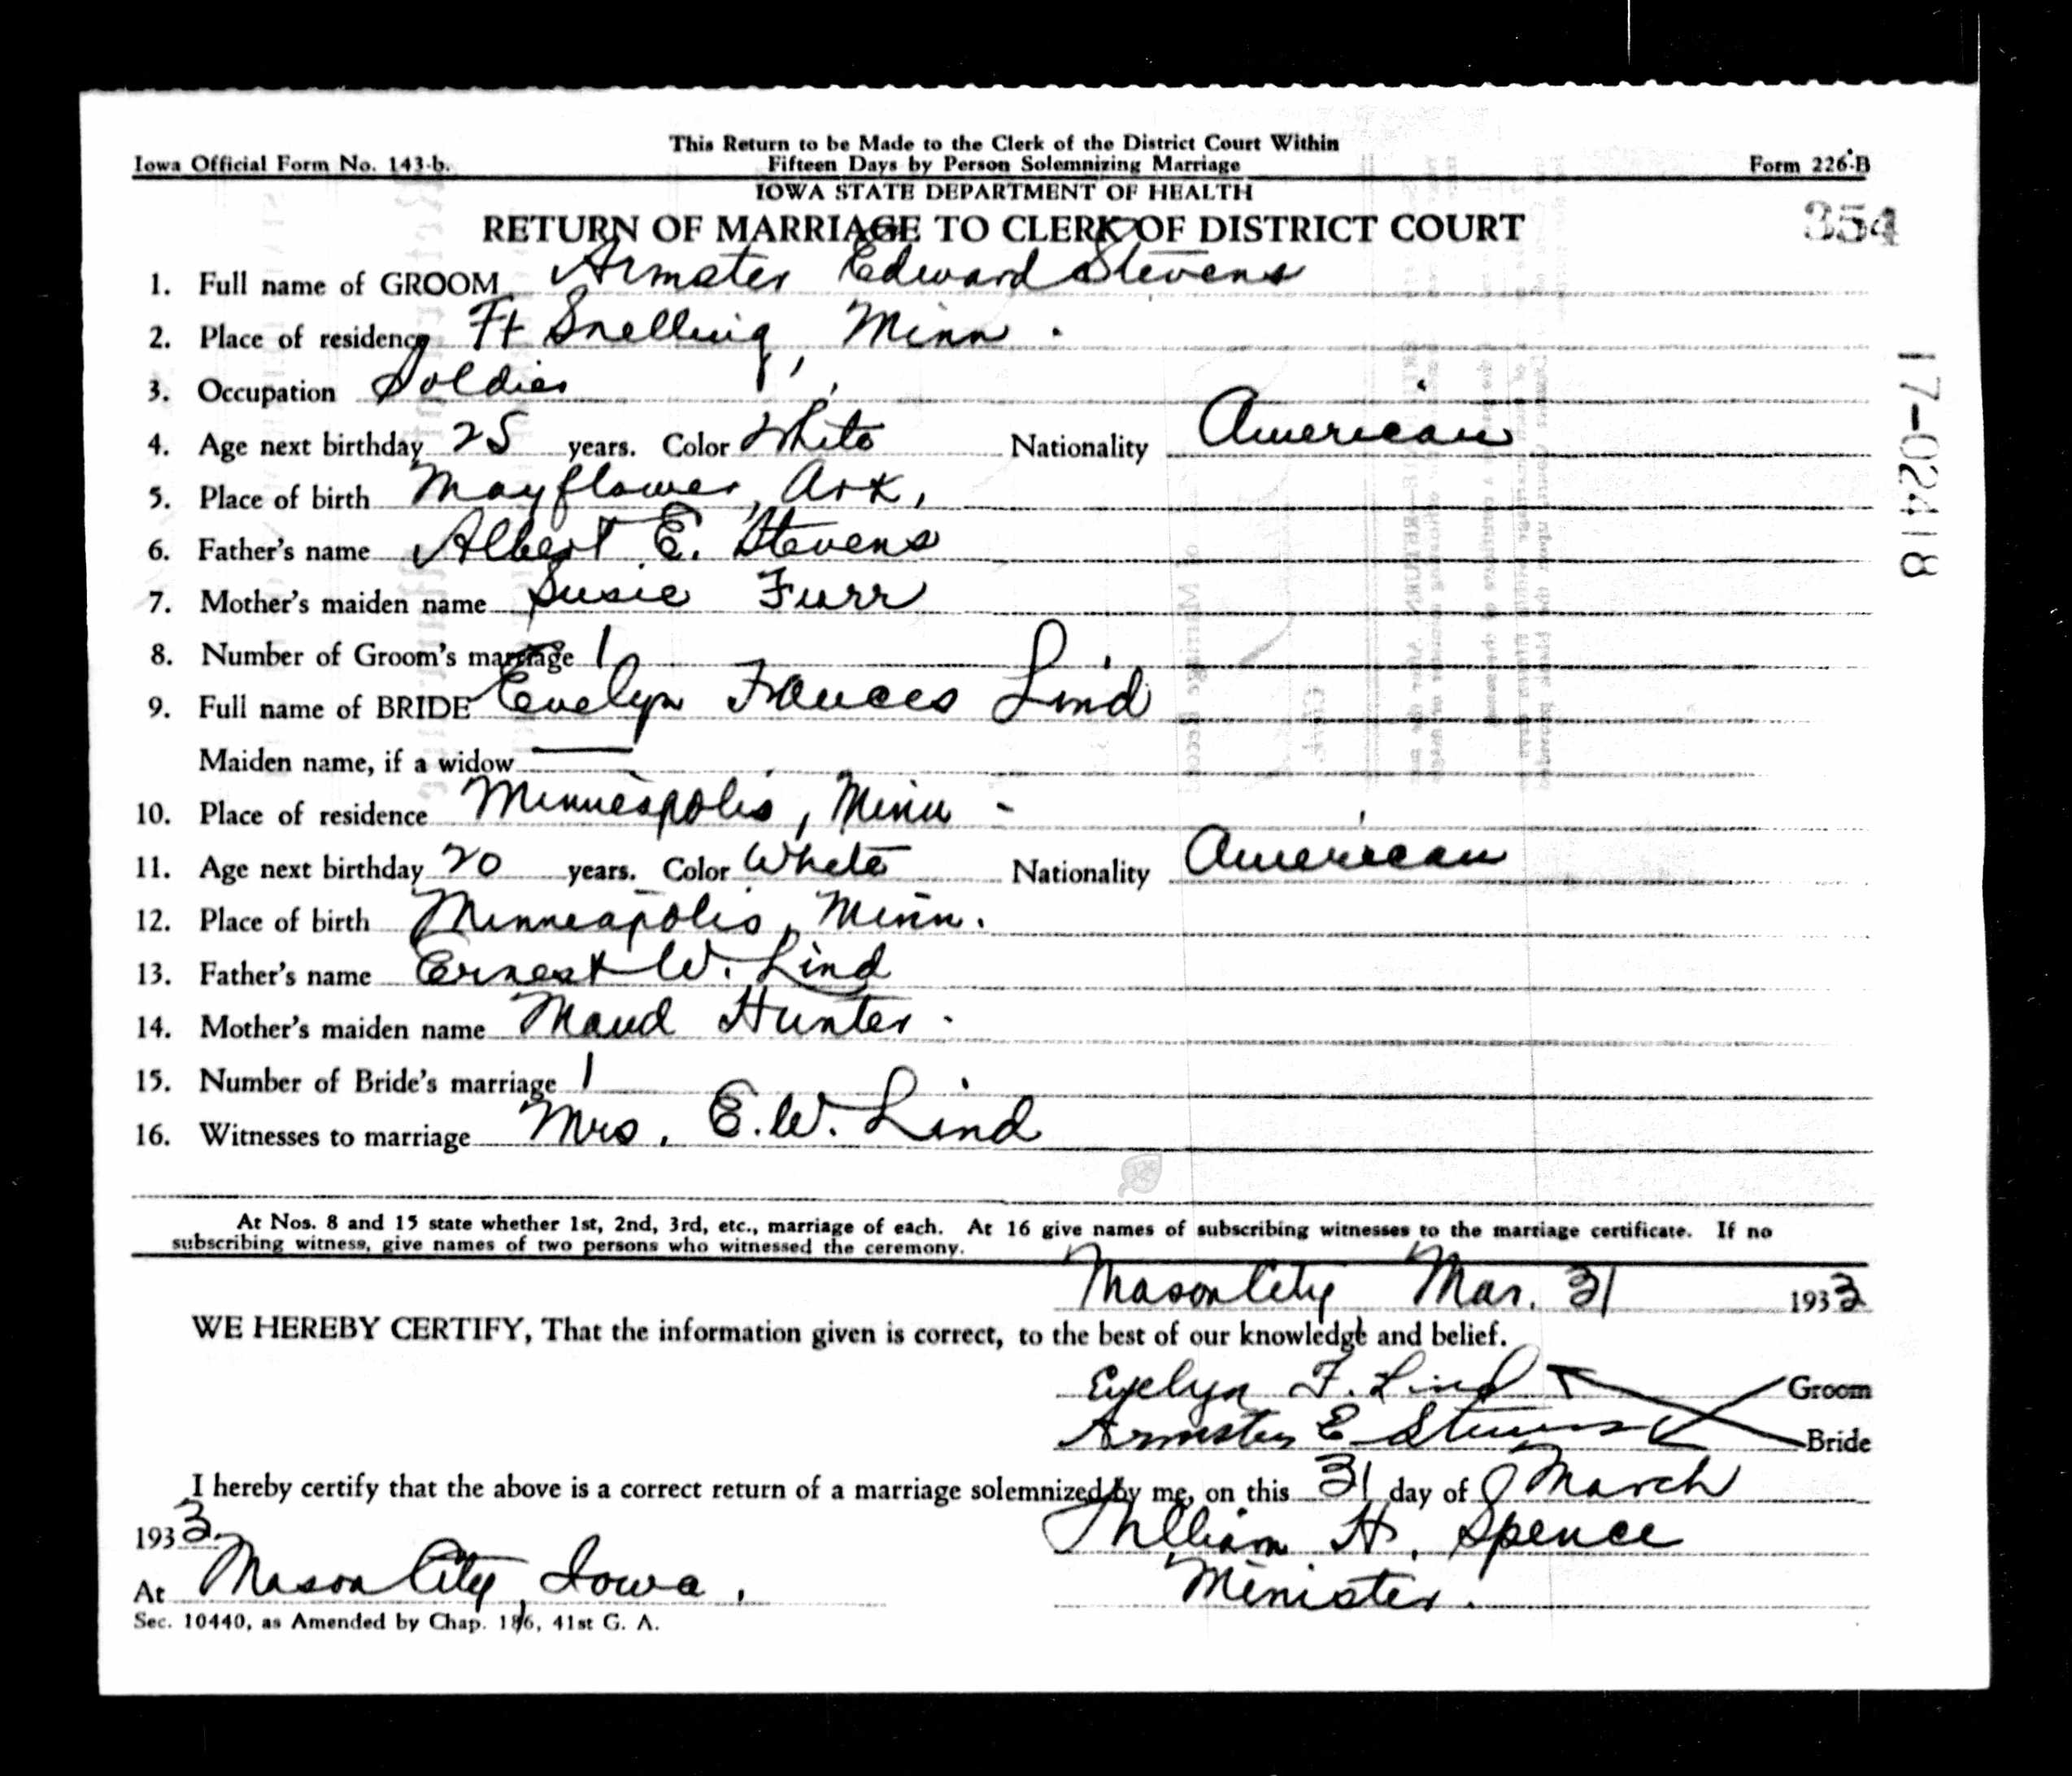 This Return to be Made to the Clerk of the District Court Within
Iowa Official Form No. 143-b. Fifteen Days by Person Solemnizing Marriage Form 226-B
IOWA STATE DEPARTMENT OF HEALTH
RETURN OF MARRIAGE TO CLERK OF DISTRICT COURT 354
1. Full name of GROOM Armster Edward Stevens
2. Place of residence Ft Snelling, Minn.
3. Occupation Soldier
4. Age next birthday 25 years. Color White Nationality American
5. Place of birth Mayflower, Ark,
6. Father's name Albert E. Stevens
7. Mother's maiden name Susie Furr
8. Number of Groom's marriage 1
9. Full name of BRIDE Evelyn Frances Lind
Maiden name, if a widow
10. Place of residence Minneapolis, Minn -
11. Age next birthday 20 years. Color White Nationality American
12. Place of birth Minneapolis, Minn.
13. Father's name Ernest W. Lind
14. Mother's maiden name Maud Hunter.
15. Number of Bride's marriage 1
16. Witnesses to marriage Mrs. E.W. Lind
17-02418
At Nos. 8 and 15 state whether 1st, 2nd, 3rd, etc., marriage of each. At 16 give names of subscribing witnesses to the marriage certificate. If no
subscribing witness, give names of two persons who witnessed the ceremony.
Mason City Mar. 31 1933
WE HEREBY CERTIFY, That the information given is correct, to the best of our knowledge and belief.
Evelyn F. Lind Groom
Armster E Stevens Bride
I hereby certify that the above is a correct return of a marriage solemnized by me, on this 31 day of March
1933. William H. Spence
At Mason City, Iowa. Minister.
Sec. 10440, as Amended by Chap. 186, 41st G. A.